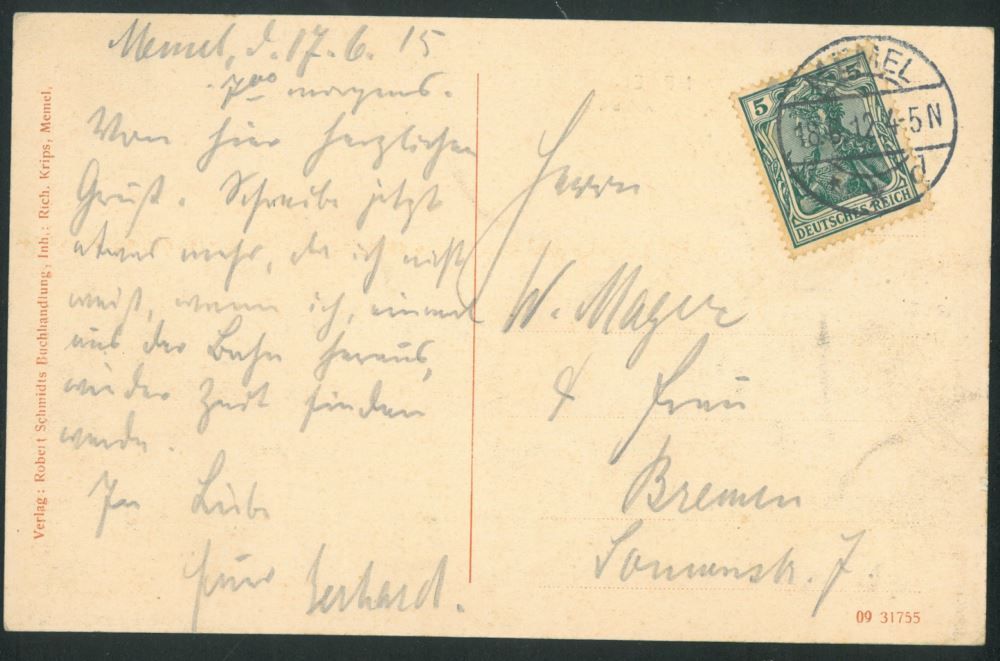 Memel, d. 17. 6. 15
7 00 morgens.
Von hier herzlichen
Gruß. Schreibe jetzt
etwas mehr, da ich nicht
weiß, wann ich, einmal
aus der Bahn heraus,
wieder Zeit finden
werde.
In Liebe
Euer Gerhard.
Verlag: Robert Schmidts Buchhandlung, Inh.: Rich. Krips, Memel.
Herrn
W. Mayer
& Frau
Bremen
Sonnenstr. 7.
5
5
DEUTSCHES REICH
MEMEL
18.6.12 4-5 N
* d
09 31755